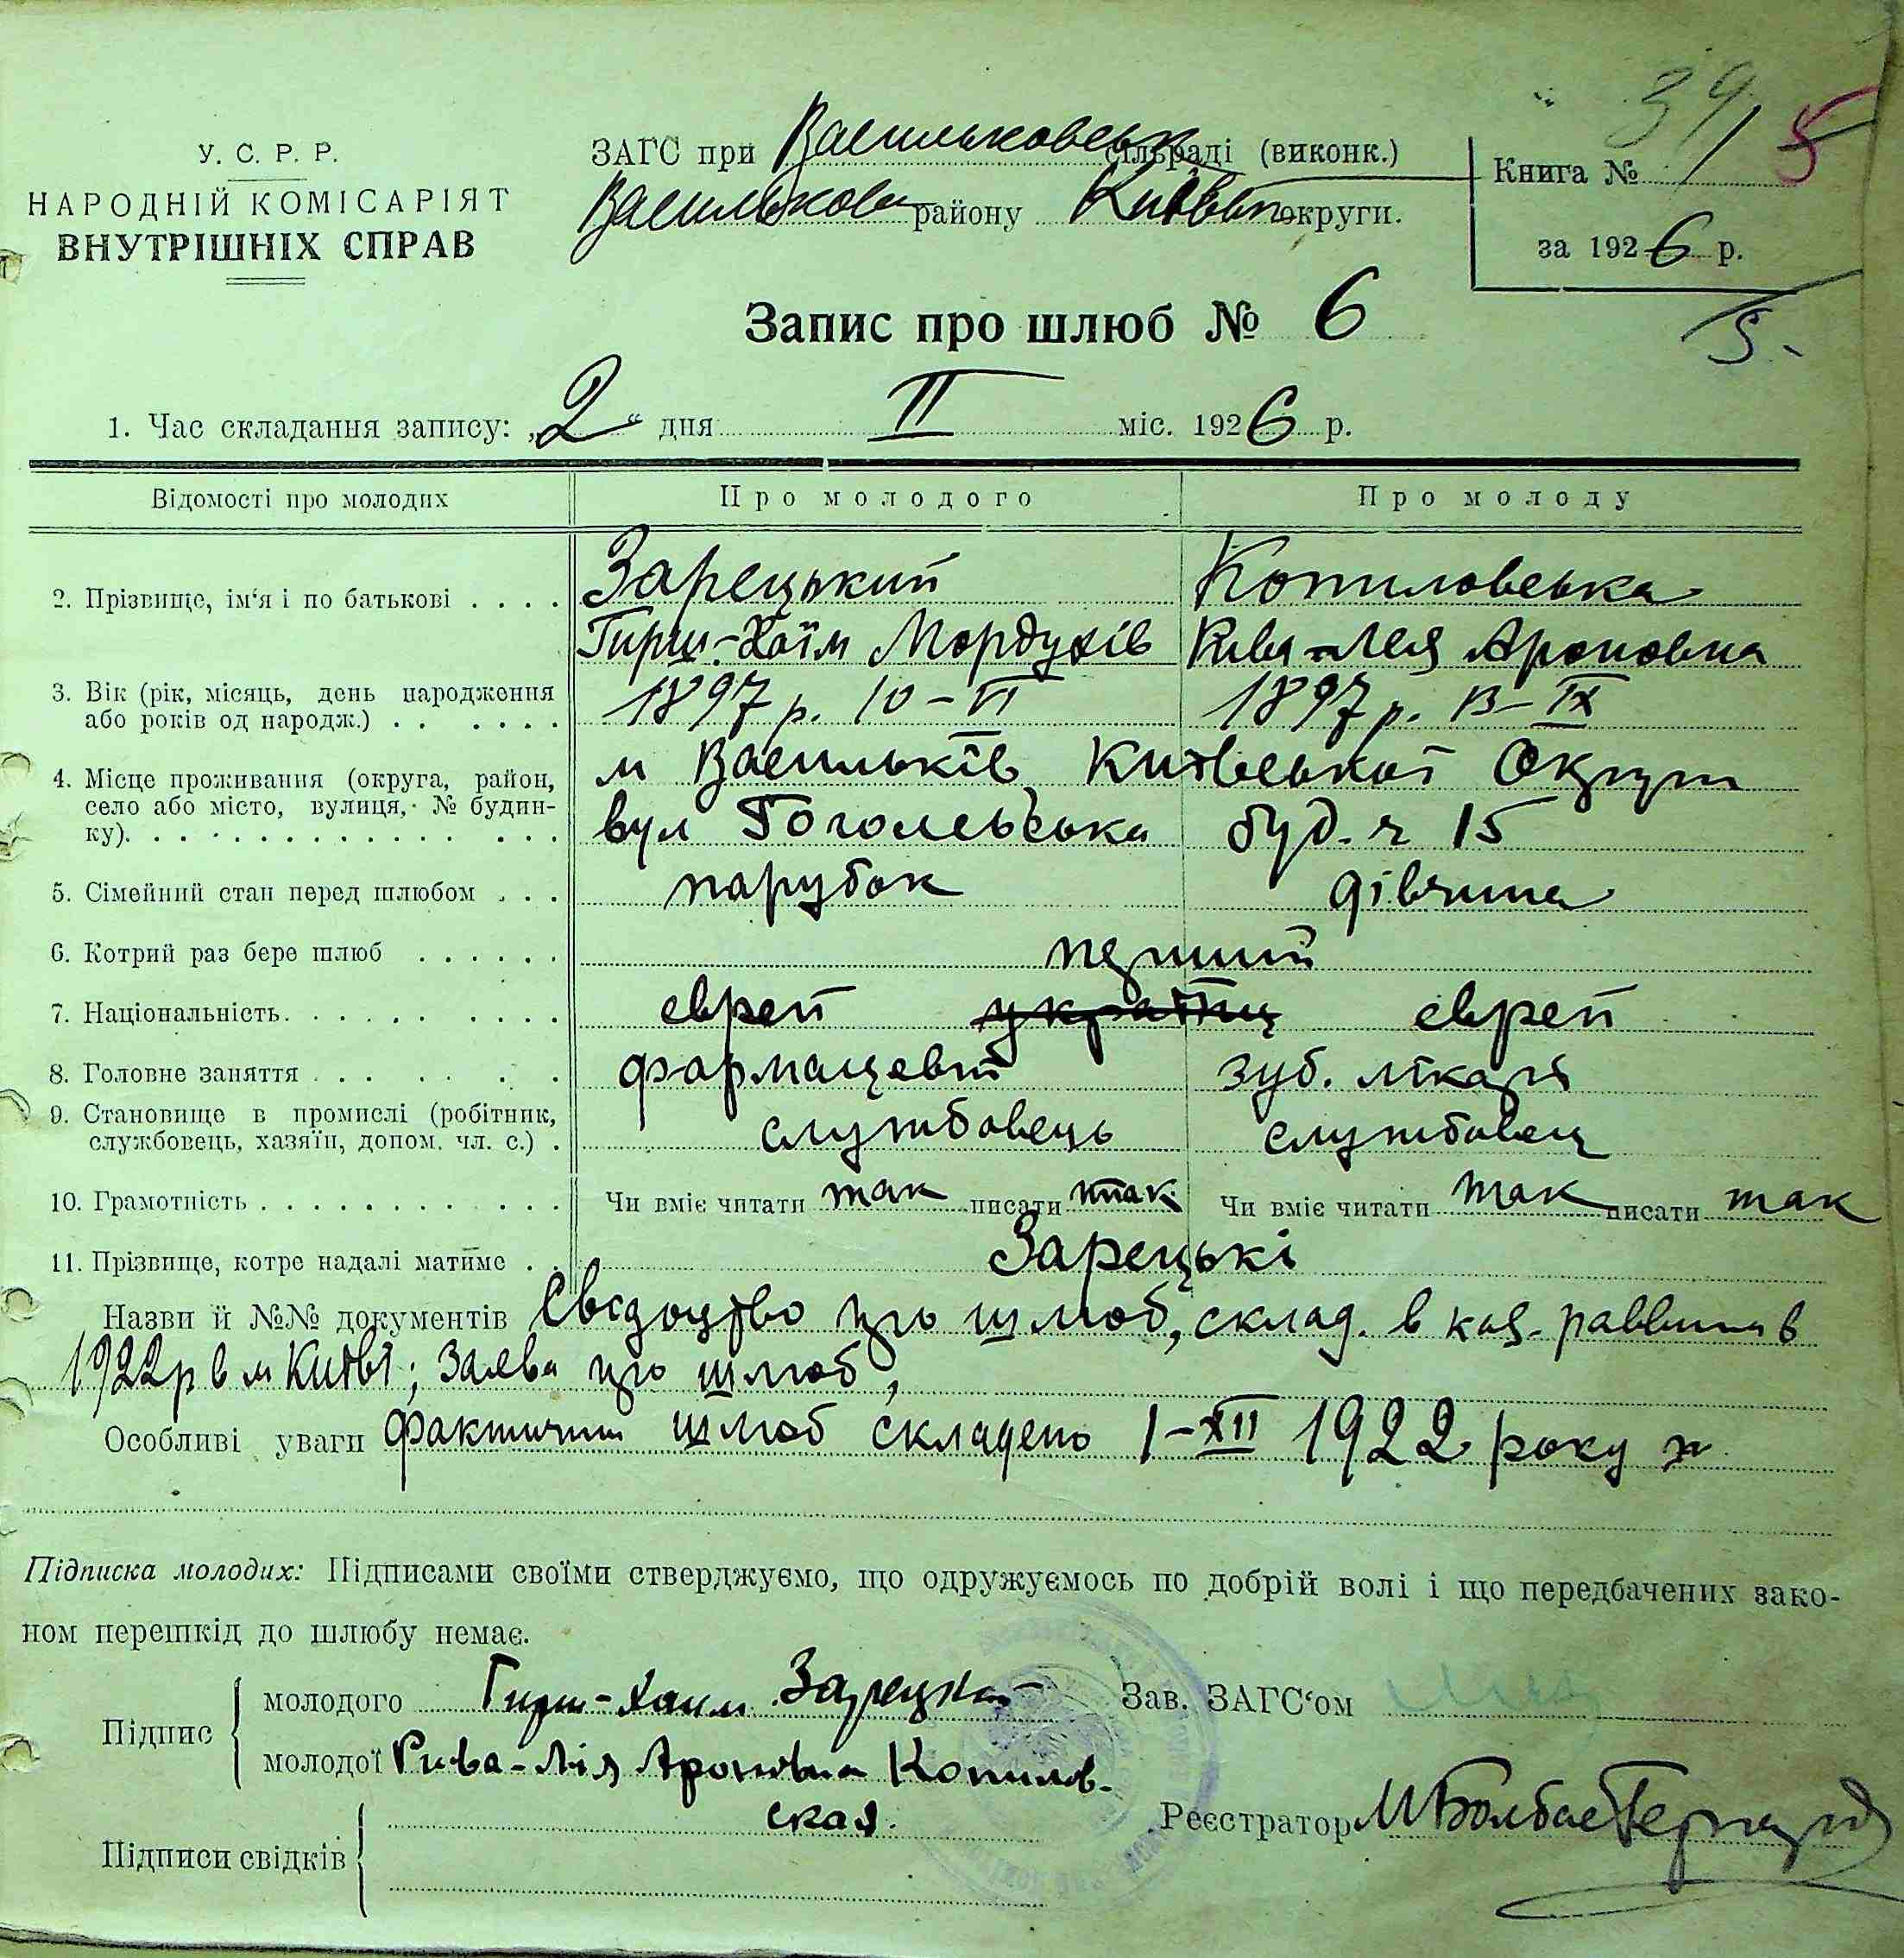 39/5
У. С. Р. Р.
НАРОДНІЙ КОМІСАРІЯТ
ВНУТРІШНІХ СПРАВ
ЗАГС при Васильковськ сільраді (виконк.)
Васильков району Київськ округи.
Книга № 1
за 1926 р.
5.
Запис про шлюб № 6
1. Час складання запису: „2“ дня II міс. 1926 р.
Відомості про молодих Про молодого Про молоду
2. Прізвище, ім'я і по батькові . . . . Зарецький Копиловська
Гирш-Хаїм Мордухів Рива-Лея Ароновна
3. Вік (рік, місяць, день народження
або років од народж.) . . . . . . 1897 р. 10-VI 1897 р. 13-IX
4. Місце проживання (округа, район,
село або місто, вулиця, № будин-
ку). . . . . . . . . . . . . . . .
м Васильків Київської Округи
вул Гогольська буд. ч 15
5. Сімейний стан перед шлюбом . . . парубок дівчина
6. Котрий раз бере шлюб . . . . . . перший
7. Національність. . . . . . . . . . еврей україн еврей
8. Головне заняття . . . . . . . фармацевт зуб. лікарь
9. Становище в промислі (робітник,
службовець, хазяїн, допом. чл. с.) . службовець службовец
10. Грамотність . . . . . . . . . . . . Чи вміє читати так писати так Чи вміє читати так писати так
11. Прізвище, котре надалі матиме . . Зарецькі
Назви й №№ документів Свєдоцтво про шлюб, склад. в каз. раввина в
1922 р в м Київі; Заява про шлюб,
Особливі уваги фактичний шлюб складено 1-XII 1922 року
Підписка молодих: Підписами своїми стверджуємо, що одружуємось по добрій волі і що передбачених зако-
ном перешкід до шлюбу немає.
Підпис
молодого Гирш-Хаим Зарецкий
молодої Рива-Лія Ароновна Копилов-
ская.
Зав. ЗАГС'ом
Підписи свідків
Реєстратор